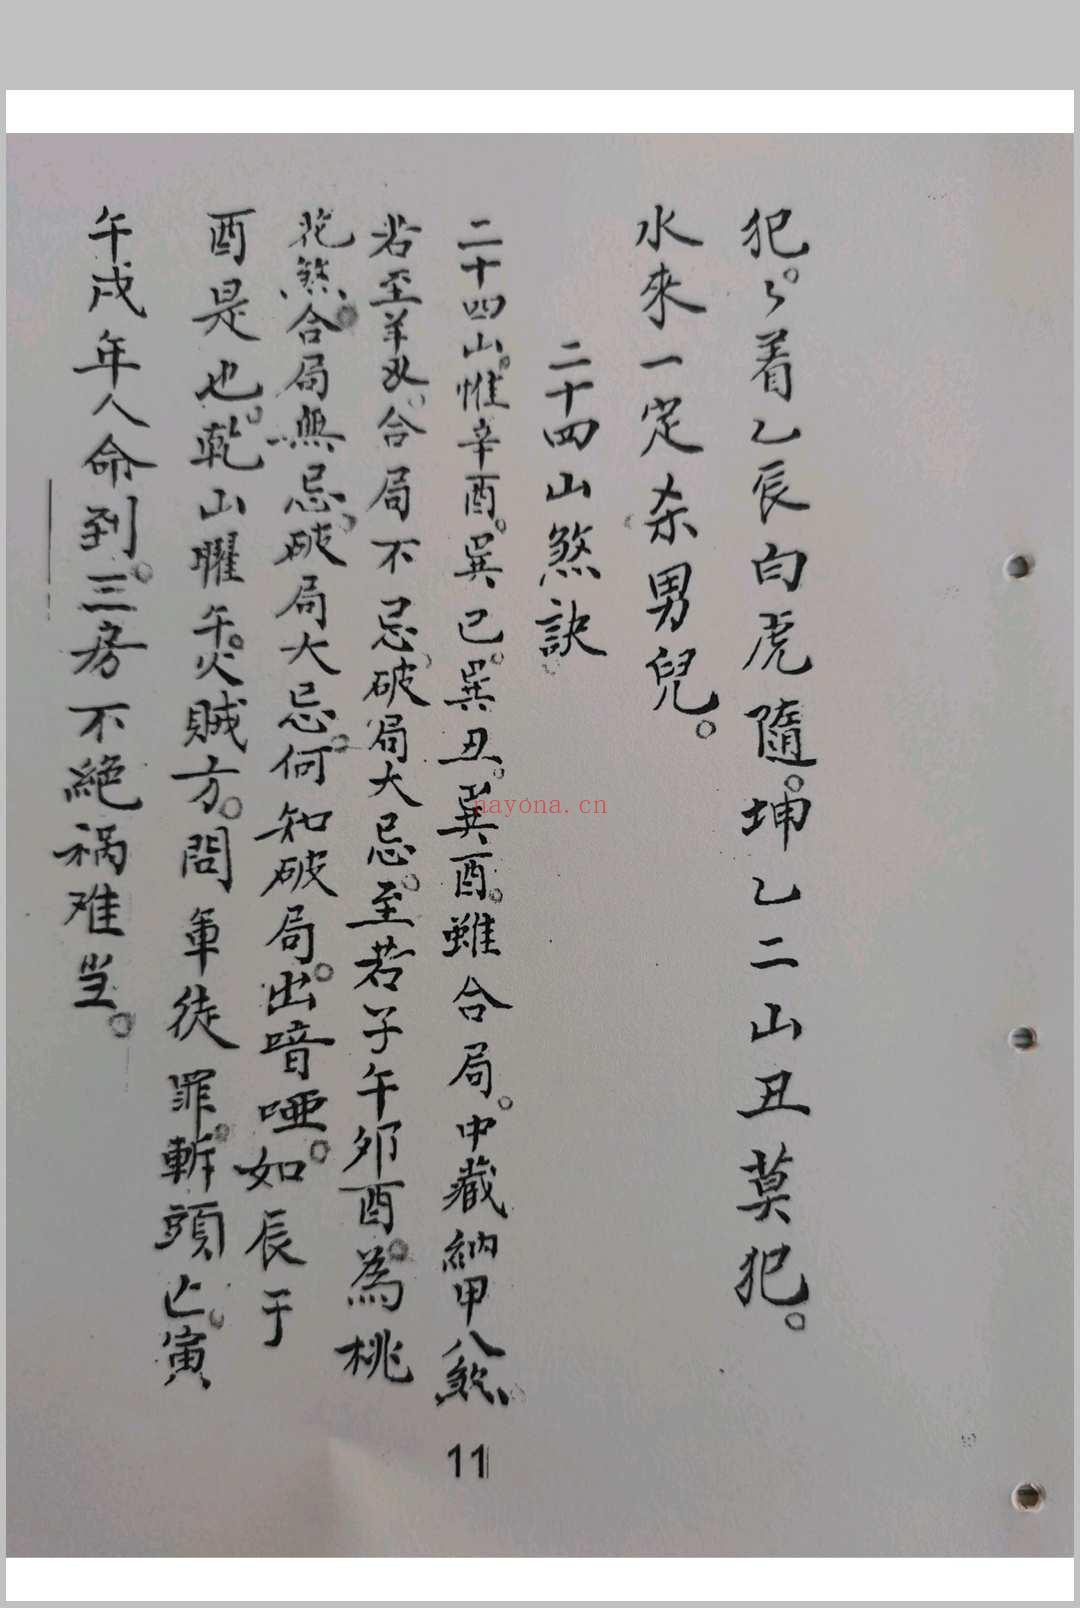 犯。々着乙辰白虎隨。坤乙二山丑莫犯。
水來一定杀男兒。
二十四山煞訣
二十四山。惟辛酉。巽巳。巽丑。巽酉。雖合局。中藏納甲八煞。
若至羊刃。合局不忌。破局大忌。至若子午夘酉。為桃
花煞。合局無忌。破局大忌。何知破局。出喑啞。如辰于
酉是也。乾山曜午。火賊方。問軍徒罪。斬頭亡。寅
午戌年人命到。三房不絕禍难当。
nayona.cn
11